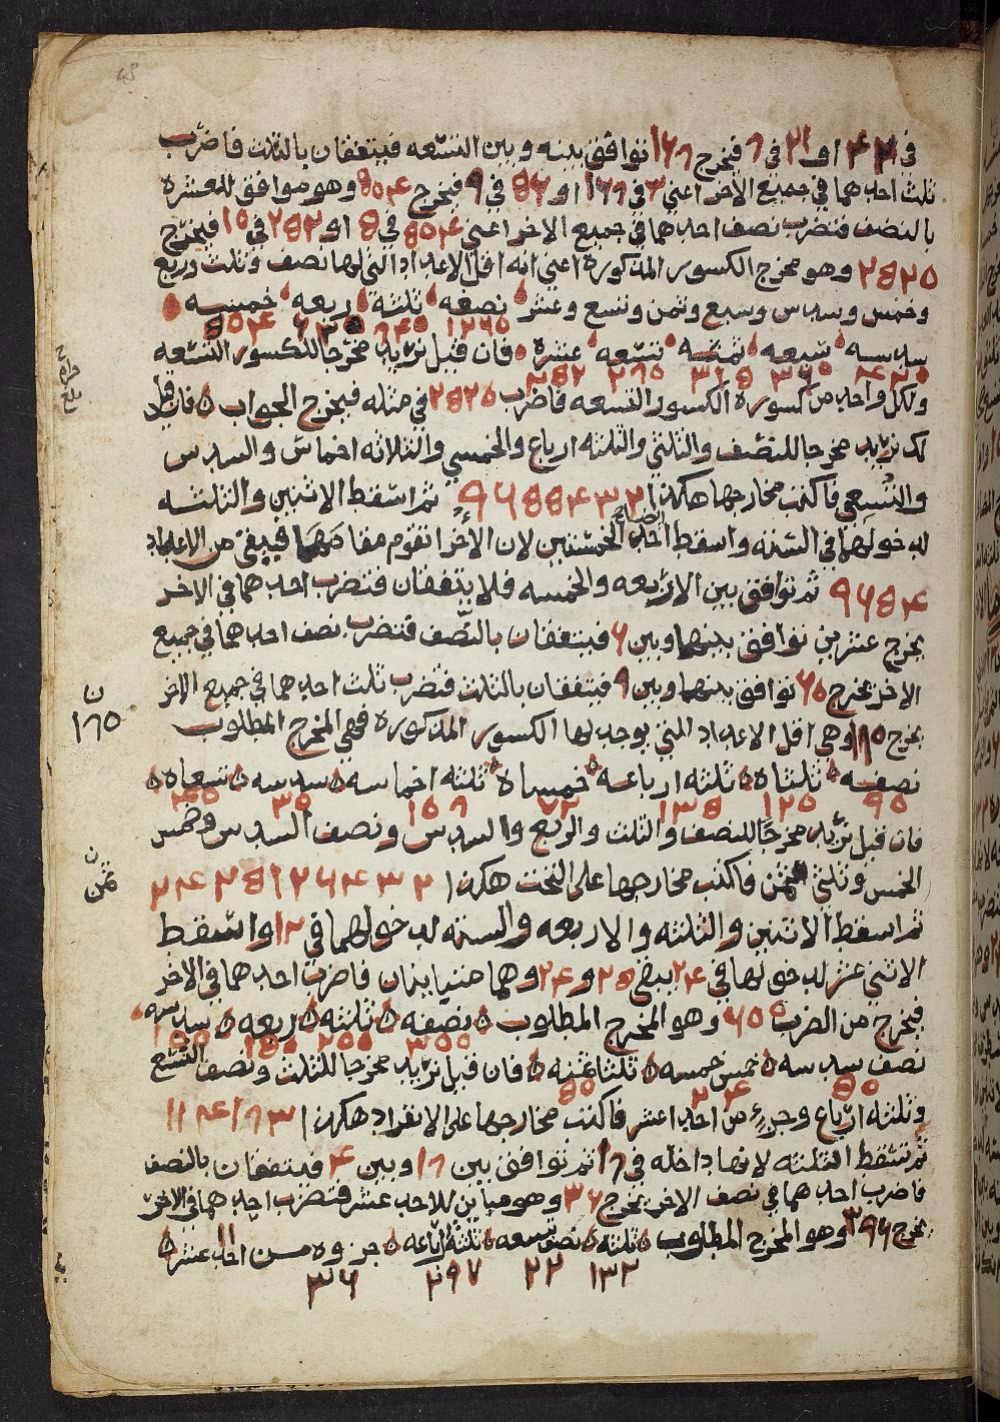 في ٤٢ او ٢١ في ٨ فيخرج ١٦٨ توافق بينه وبين التسعه فيتفقان بالثلث فاضرب
ثلث احدهما في جميع الاخر اعني ٣ في ١٦٨ او ٥٦ في ٩ فيخرج ٥٠٤ وهو موافق للعشره
بالنصف فتضرب نصف احدهما في جميع الاخر اعني ٥٠٤ في ٥ او ٢٥٢ في ١٠ فيخرج
٢٥٢٠ وهو مخرج الكسور المذكوره اعني انه اقل الاعداد التي لها نصف وثلث وربع
وخمس وسدس وسبع وثمن وتسع وعشر نصفه ثلثه ربعه خمسه
١٢٦٠ ٨٤٠ ٦٣٠ ٥٠٤
سدسه سبعه ثمنه تسعه عشره فان قيل نريد مخرجا للكسور التسعه
٤٢٠ ٣٦٠ ٣١٥ ٢٨٠ ٢٥٢
ولكل واحد من كسوره الكسور التسعه فاضرب ٢٥٢٠ في مثله فيخرج الجواب فان قيل
لك نريد مخرجا للنصف والثلثي والثلثه ارباع والخمسي والثلاثه اخماس والسدس
والتسعي فاكتب مخارجها هكذا ٢ ٣ ٤ ٥ ٥ ٦ ٩ ثم اسقط الاثنين والثلثه
لدخولهما في السته واسقط احد الخمستين لان الاخرا تقوم مقامهما فيبقى من الاعداد
٤ ٥ ٦ ٩ ثم توافق بين الاربعه والخمسه فلا يتفقان فتضرب احدهما في الاخر
يخرج عشرين توافق بينهما وبين ٦ فيتفقان بالنصف فتضرب نصف احدهما في جميع
الاخر يخرج ٦٠ توافق بينهما وبين ٩ فيتفقان بالثلث فتضرب ثلث احدهما في جميع الاخر
ن
١٨٠
يخرج ١٨٠ وهي اقل الاعداد التي يوجد لها الكسور المذكوره فهي المخرج المطلوب
نصفه ثلثاه ثلثه ارباعه خمساه ثلثه اخماسه سدسه تسعاه
٩٠ ١٢٠ ١٣٥ ٧٢ ١٠٨ ٣٠
فان قيل نريد مخرجا للنصف والثلث والربع والسدس ونصف السدس وخمس
ن
ثمن
الخمس وثلثي الثمن فاكتب مخارجها على التخت هكذا ٢ ٣ ٤ ٦ ١٢ ٢٥ ٢٤
ثم اسقط الاثنين والثلثه والاربعه والسته لدخولهما في ١٢ واسقط
الاثني عشر لدخولها في ٢٤ يبقى ٢٥ و ٢٤ وهما متباينان فاضرب احدهما في الاخر
فيخرج من الضرب ٦٠٠ وهو المخرج المطلوب نصفه ثلثه ربعه سدسه
٣٠٠ ٢٠٠ ١٥٠ ١٠٠
نصف سدسه خمس خمسه ثلثا ثمنه فان قيل نريد مخرجا للثلث ونصف التسع
٥٠ ٢٤ ٥٠
وثلثه ارباع وجزء من احد عشر فاكتب مخارجها على الانفراد هكذا ٣ ١٨ ٤ ١١
ثم تسقط الثلثه لانها داخله في ١٨ ثم توافق بين ١٨ وبين ٤ فيتفقان بالنصف
فاضرب احدهما في نصف الاخر يخرج ٣٦ وهو مباين للاحد عشر فتضرب احدهما في الاخر
يخرج ٣٩٦ وهو المخرج المطلوب ثلثه نصف تسعه ثلثة ارباعه جزوه من احد عشر
١٣٢ ٢٢ ٢٩٧ ٣٦